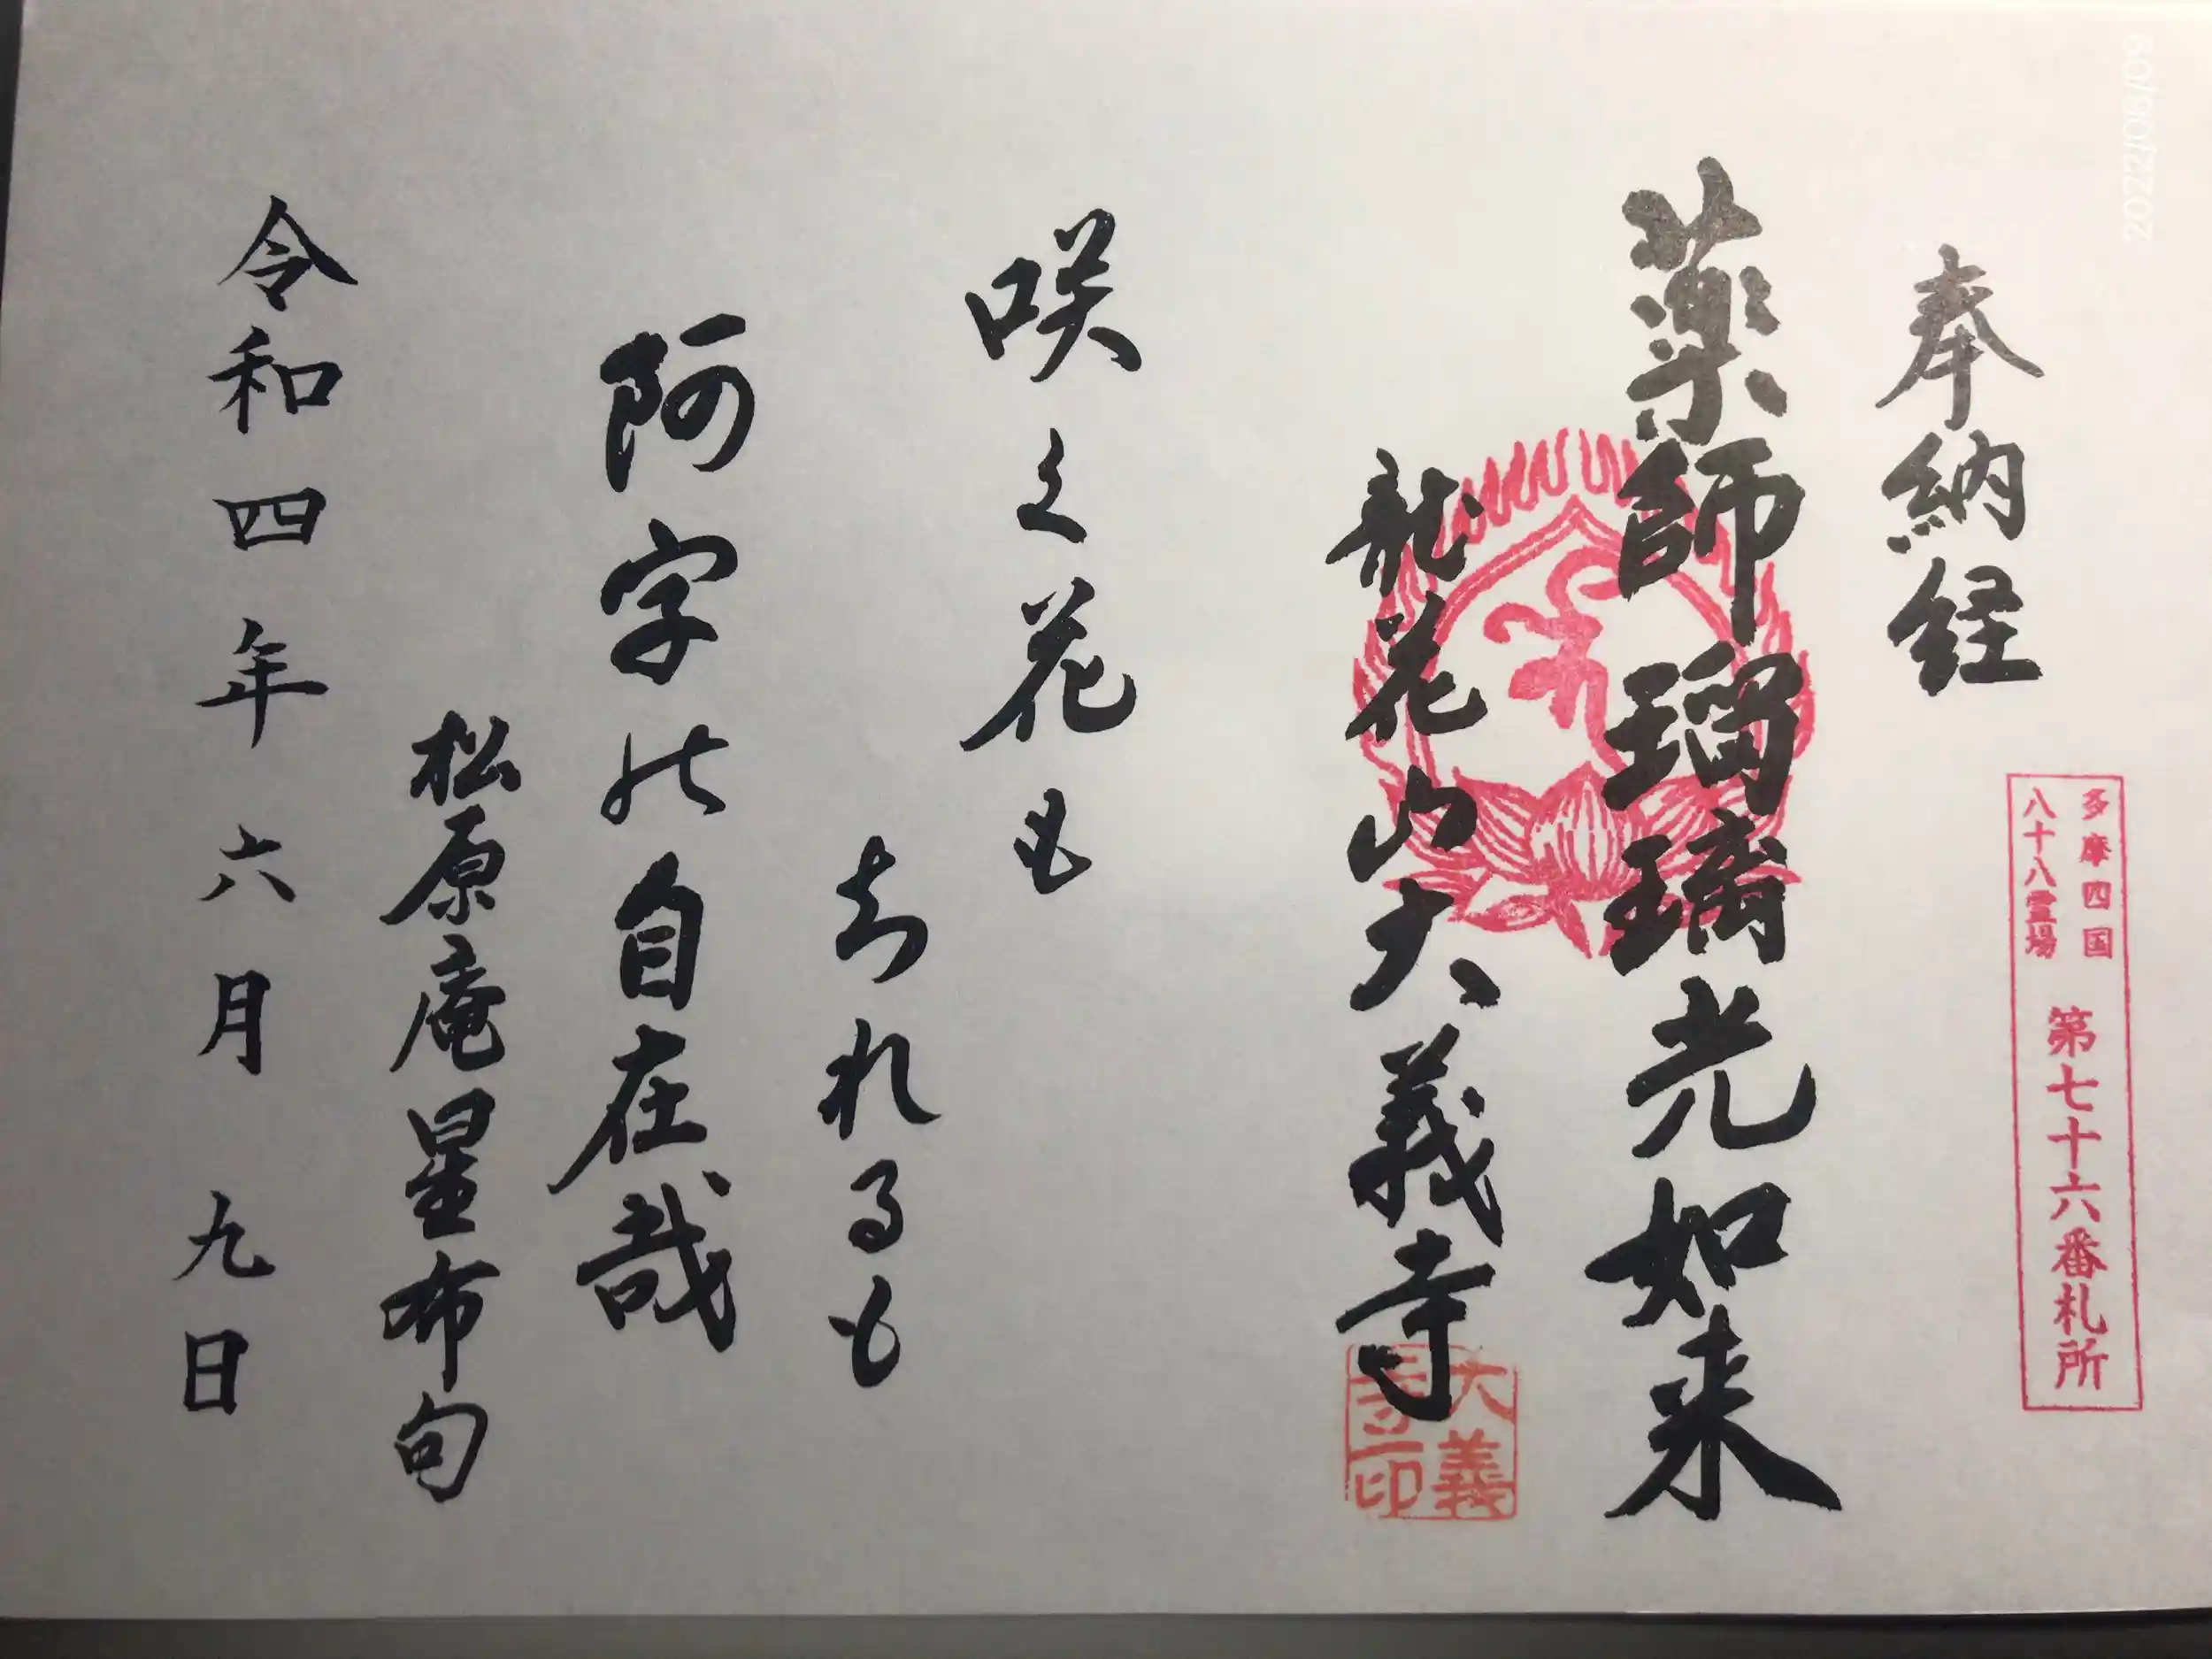 2022/06/09
奉納経
多摩四国
八十八霊場
第七十六番札所
薬師瑠璃光如来
龍花山大義寺
大義
寺印
咲く花も
ちれるも
阿字の自在哉
松原庵星布句
令和四年六月九日